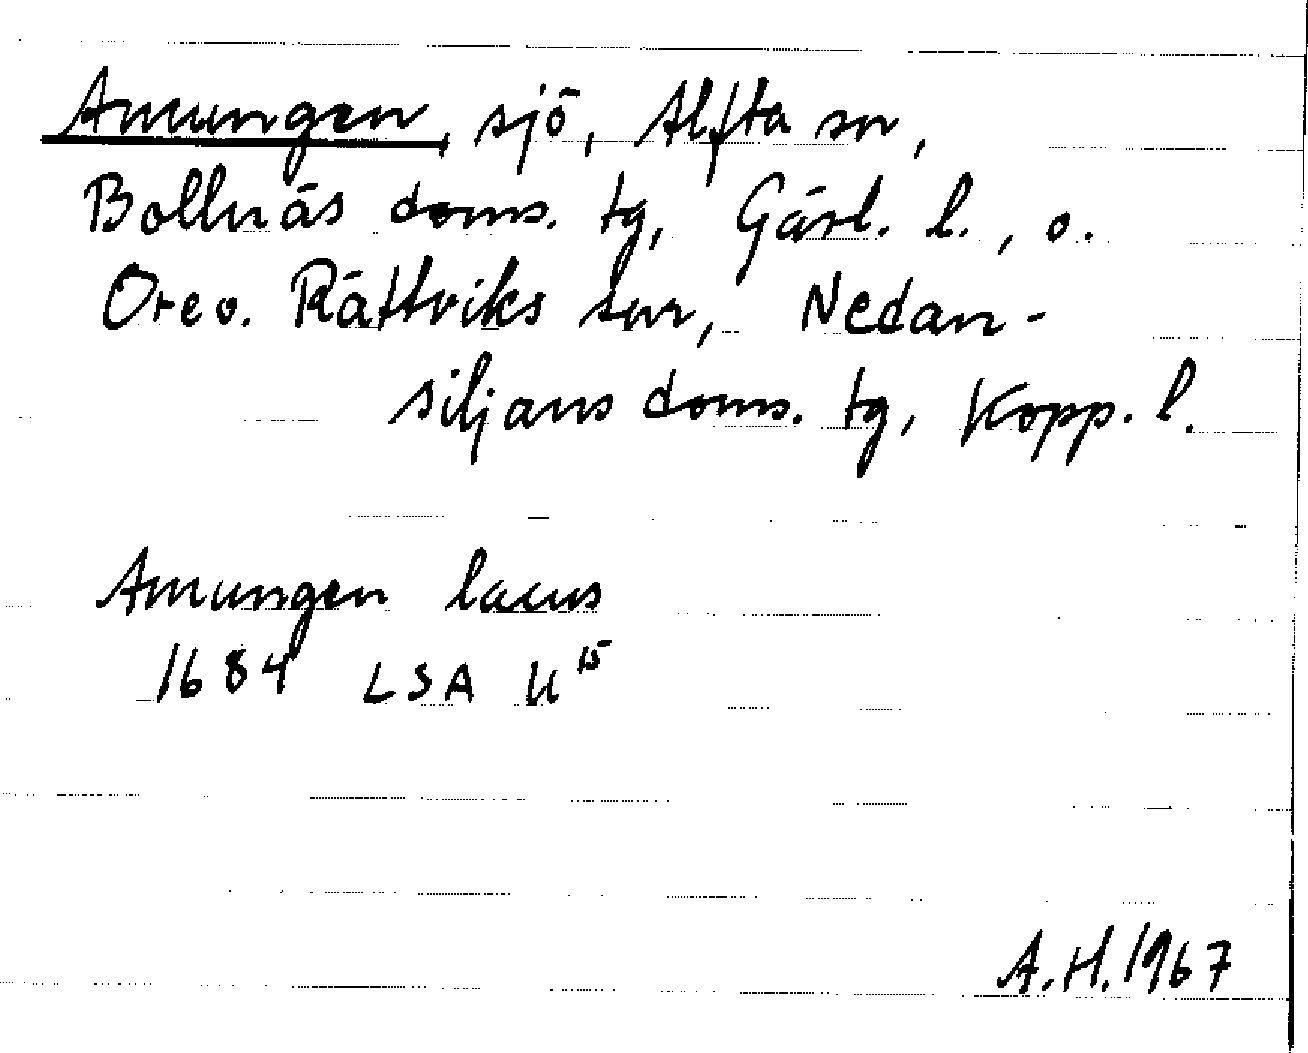 Amungen, sjö, Alfta sn,
Bollnäs doms. tg, Gävl. l., o.
Ore o. Rättviks snr, Nedan-
siljans doms. tg, Kopp. l.
Amungen lacus
1684 LSA U15
A.H. 1967